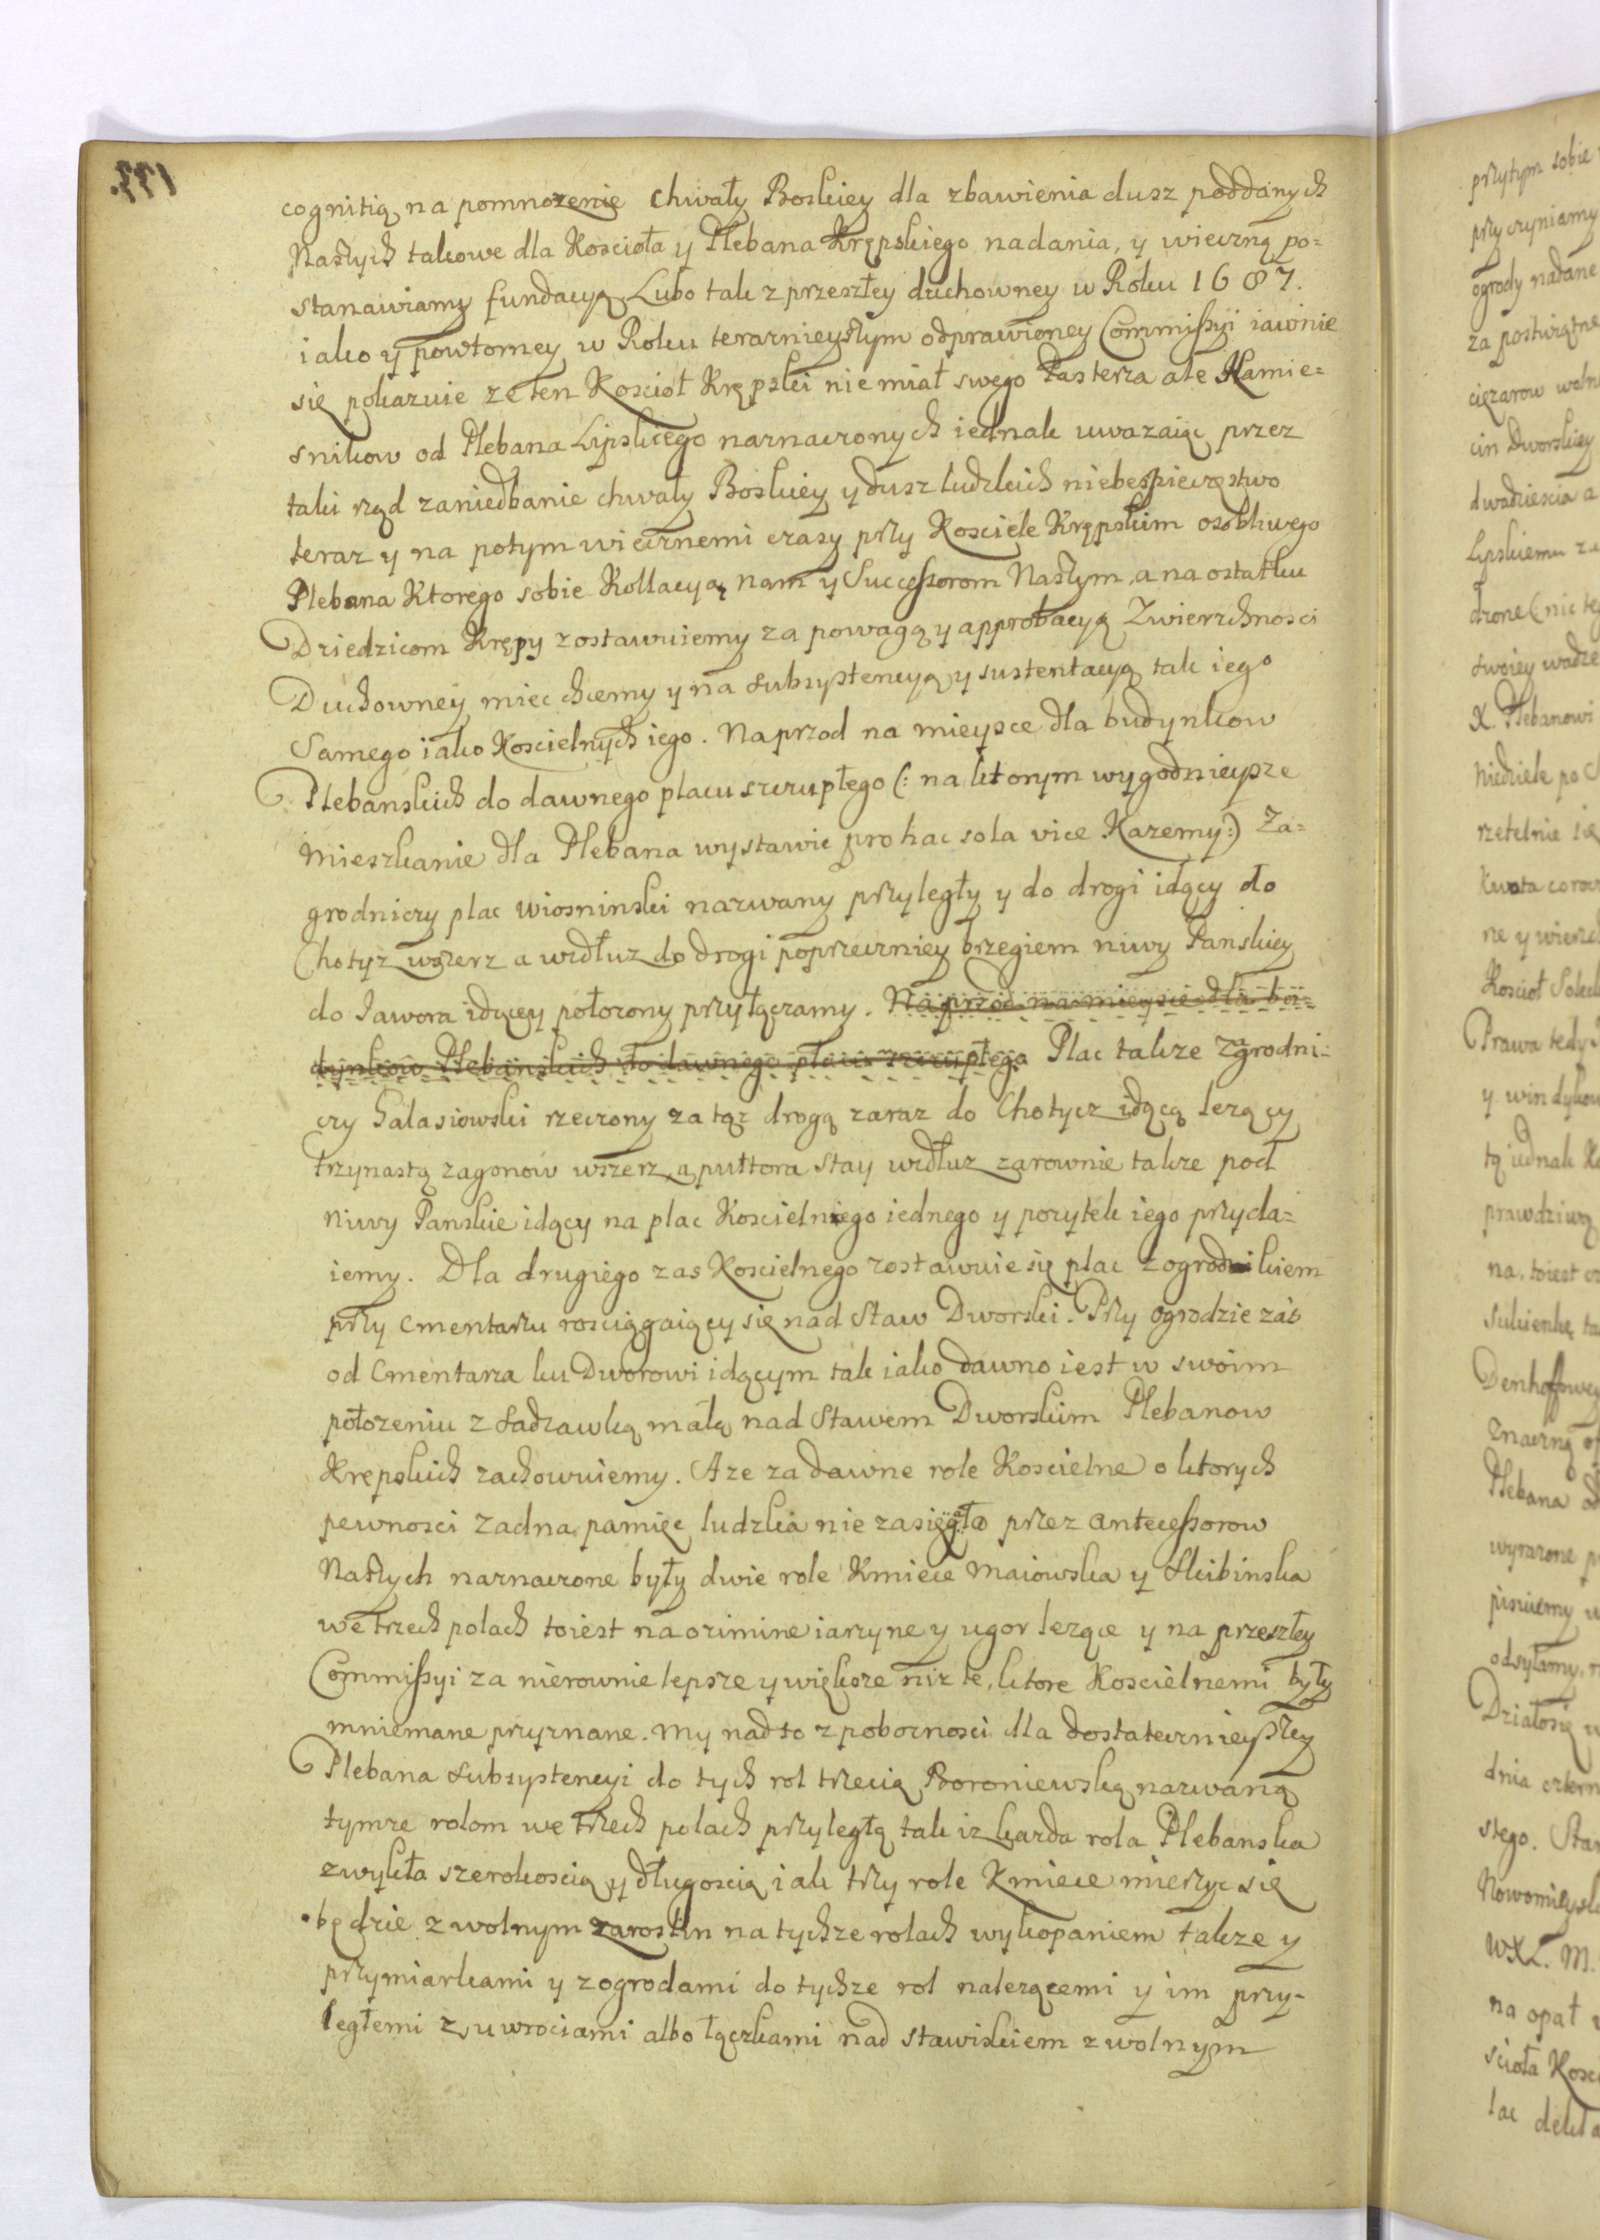 177.
cognitią na pomnozenie Chwały Boskiey dla zbawienia dusz poddanych
Naszych takowe dla Koscioła y Plebana Krępskiego nadania, y wieczną po=
stanawiamy fundacyą. Lubo tak z przeszłey duchowney w Roku 1687.
iako y powtorney w Roku terazniejszym odprawioney Commissyi iawnie
się pokazuie ze ten Koscioł Krępski nie miał swego Pasterza ale Namie=
snikow od Plebana Lipskiego naznaczonych iednak uwazaiąc przez
taki rząd zaniedbanie chwały Boskiey y dusz ludzkich niebespieczęstwo
teraz y na potym wiecznemi czasy przy Kosciele Krępskim osobliwego
Plebana Ktorego sobie Kollacyą nam y Successorom Naszym, a na ostatku
Dziedzicom Krępy zostawuiemy za powagą y approbacyą Zwierzchnosci
Duchowney miec chcemy y na subsystencyą y sustentacyą tak iego
Samego iako Koscielnych iego. Naprzod na mieysce dla budynkow
Plebanskich do dawnego placu szczupłego (: na ktorym wygodnieysze
Mieszkanie dla Plebana wystawic pro hac sola vice Kazemy:) Za=
grodniczy plac Wiosninski nazwany przyległy y do drogi idącу do
Chotyz wszerz a wzdłuz do drogi poprzeczniey brzegiem niwy Panskiey
do Jawora idącey połozony przyłączamy. Naprzod na mieysce dla bu=
dynkow Plebanskich do dawnego placu szczupłego Plac takze zagrodni=
czy Galasiowski rzeczony za tąz drogą zaraz do Chotycz idącą lezący
trzynastą zagonow wszerz a pułtora Stay wzdłuz zarownie takze pod
niwy Panskie idący na plac Koscielniego iednego y pozytek iego przyda=
iemy. Dla drugiego zas Koscielnego zostawuie się plac z ogrodnikiem
przy Cmentarzu rosciągaiący się nad Staw Dworski. Przy ogrodzie zas
od Cmentarza ku Dworowi idącym tak iako dawno iest w swoim
połozeniu z Sadzawką małą nad Stawem Dworskim Plebanow
Krępskich zachowuiemy. A ze za dawne role Koscielne o ktorych
pewnosci zadna pamięc ludzka nie zasięgła przez Antecessorow
Naszych naznaczone były dwie role Kmiece Maiowska y Skibinska
we trzech polach toiest na ozimine iarzyne y ugor lezące y na przeszłey
Commissyi za nierownie lepsze y większe niz te, ktore Koscielnemi były
mniemane przyznane. My nadto z poboznosci dla dostatecznieyszey
Plebana subsystencyi do tych rol trzecią Boroniewską nazwaną
tymze rolom we trzech polach przyległą tak iz kazda rola Plebanska
zwykła szerokoscią y długoscią iak trzy role Kmiece mierzyc się
będzie z wolnym zaroslin na tychze rolach wykopaniem takze y
przymiarkami y z ogrodami do tychze rol nalezącemi y im przy=
ległemi z uwrociami albo łączkami nad stawiskiem z wolnym
przytym sobie
przyczyniamy
ogrody nadane
za postwiątne
cięzarow woln
cin Dworskiey
dwadziescia a
Lipskiemu za
dzone (nic te
swoiey wadze
X. Plebanowi
Niedziele po
rzetelnie się
Kwota coroc
ne y wiesz
Koscioł Soleck
Prawa tedy
y windykow
tę iednak Ko
prawdziwą
na, toiest cz
Sukienkę ta
Denhoffowey
Znaczną
Plebana od
wyrazone p
pisuiemy w
odsyłamy, n
Działosię w
dnia cztern
stego. Sta
Nowomieysk
WXL. M.
na opał
scioła Kosc
lac dekl